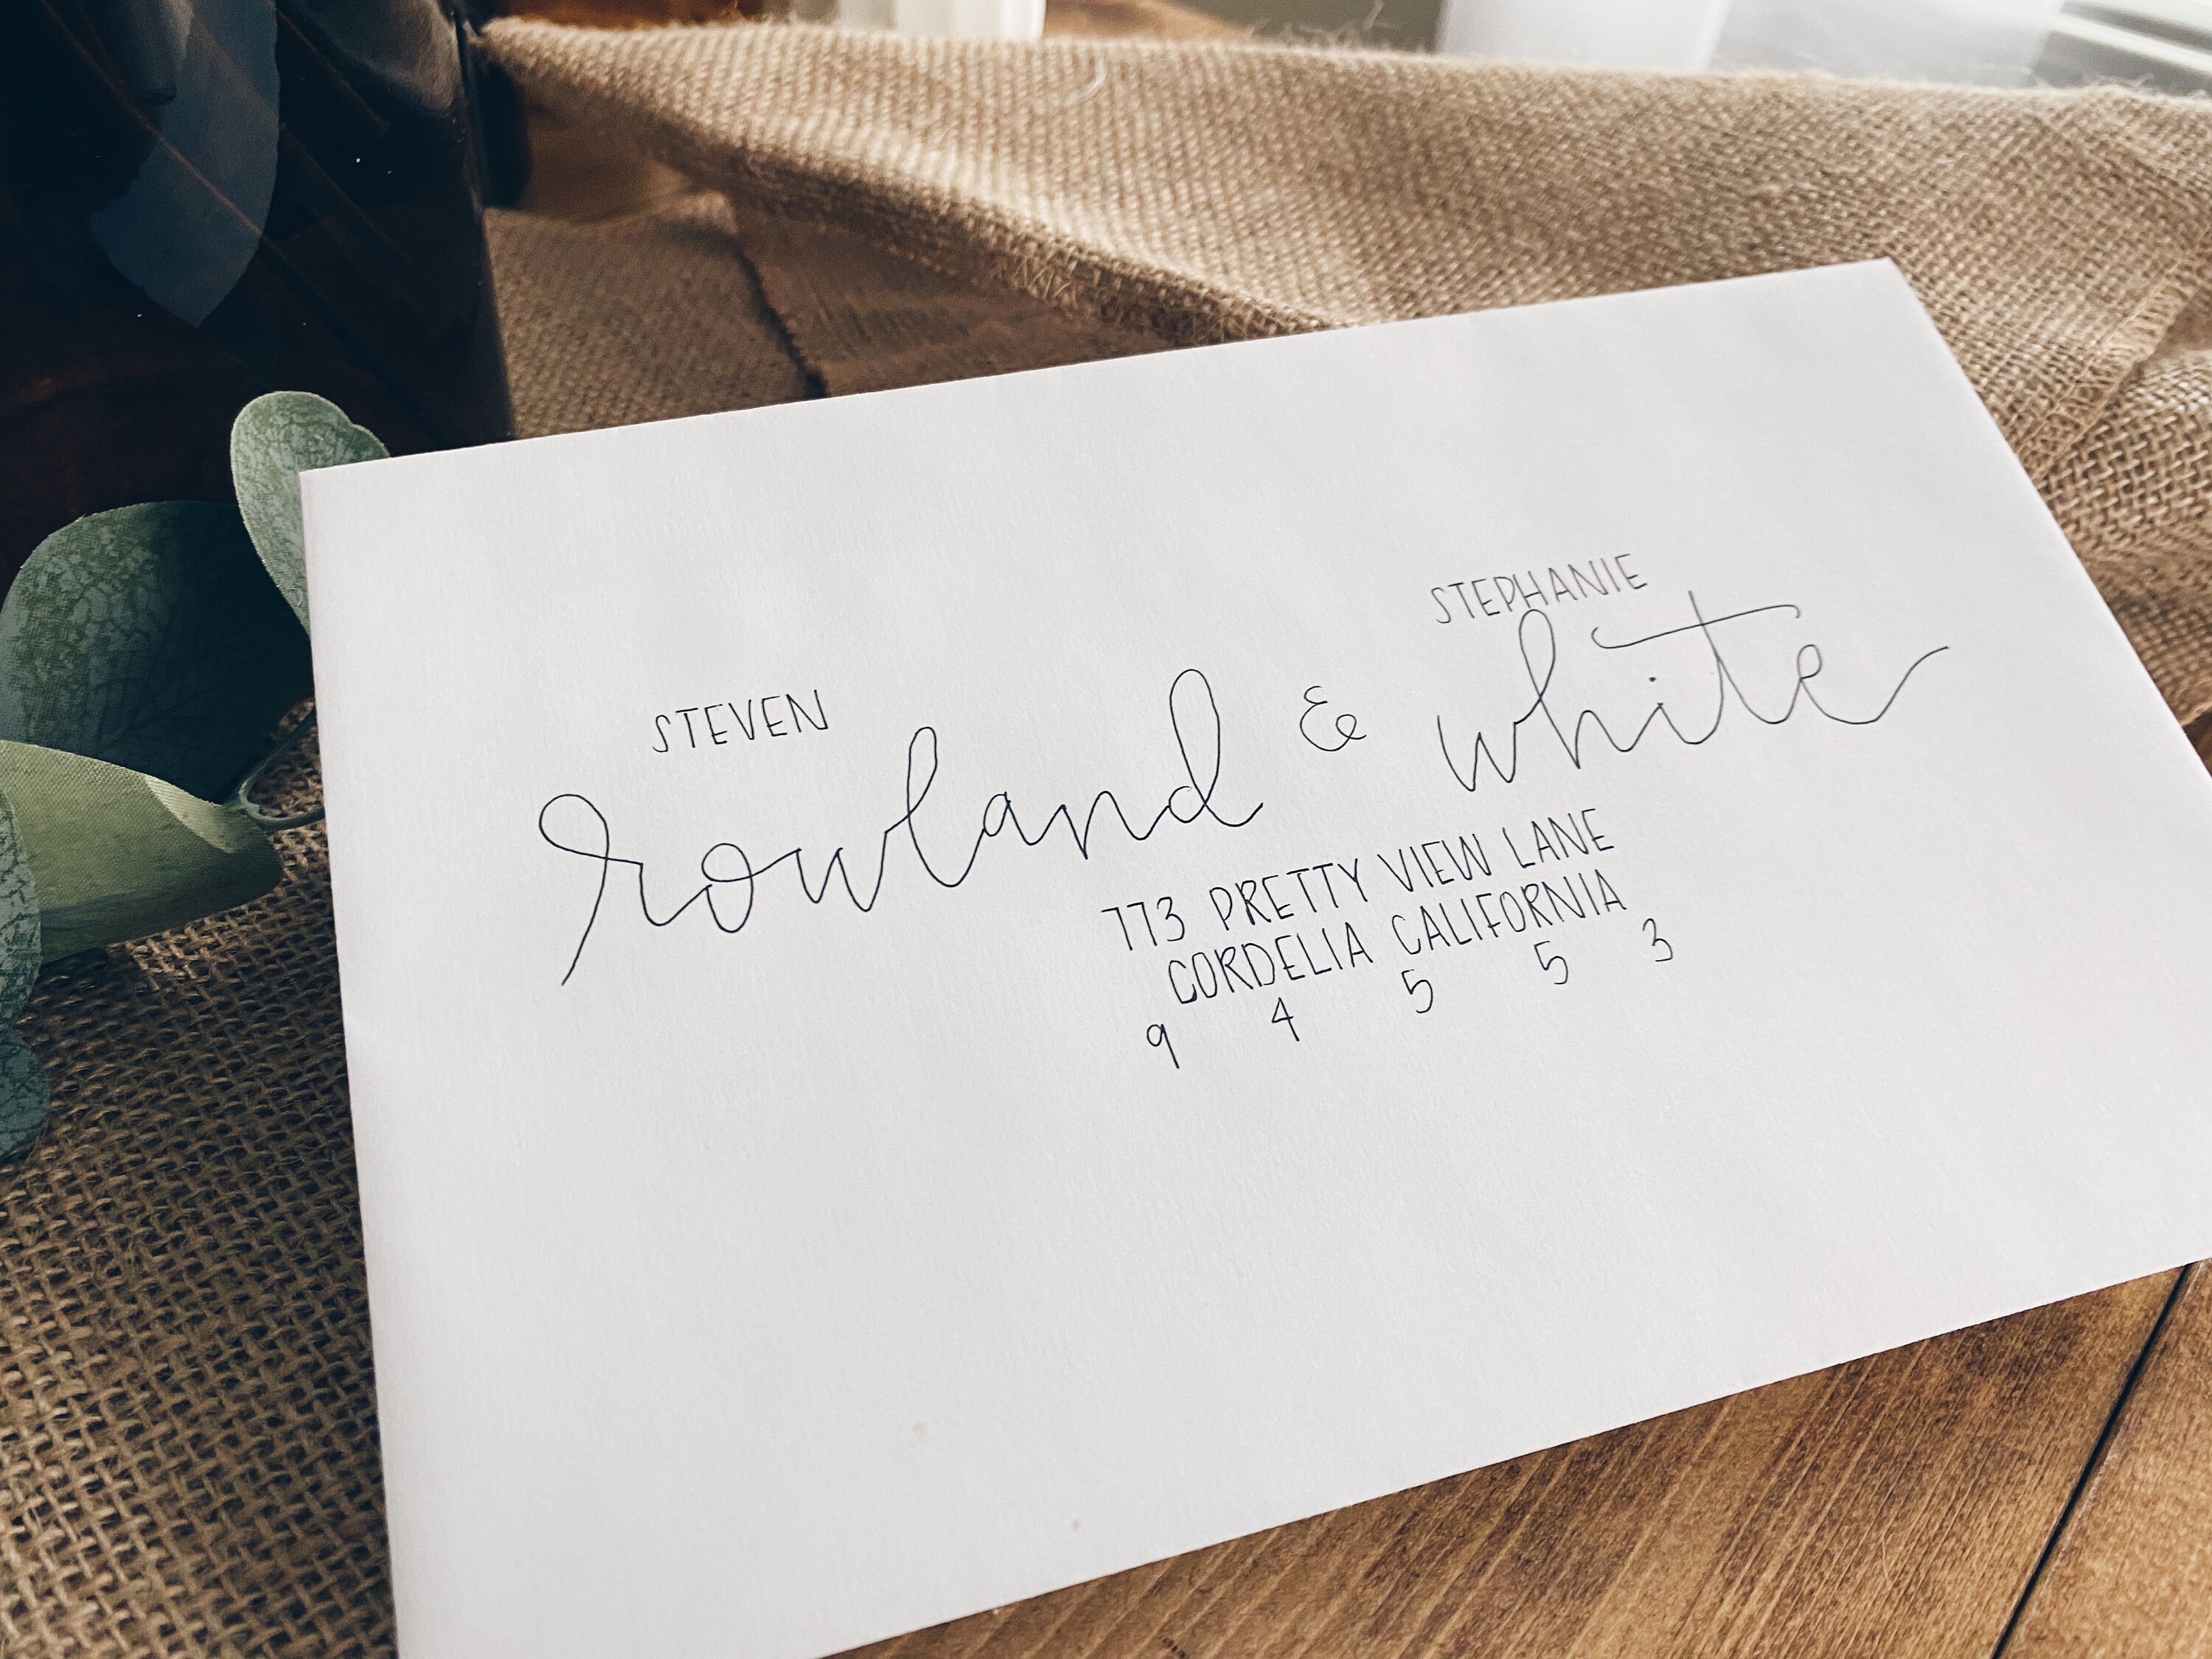 STEVEN STEPHANIE
rowland & white
773 PRETTY VIEW LANE
CORDELIA CALIFORNIA
9 4 5 5 3